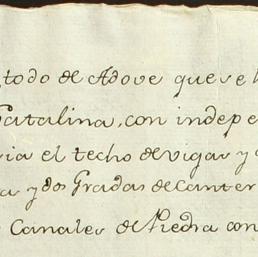 todo de Adove que se
Catalina, con indepe
ria el techo de vigas y
a y dos Gradas de Canter
Canales de Piedra con